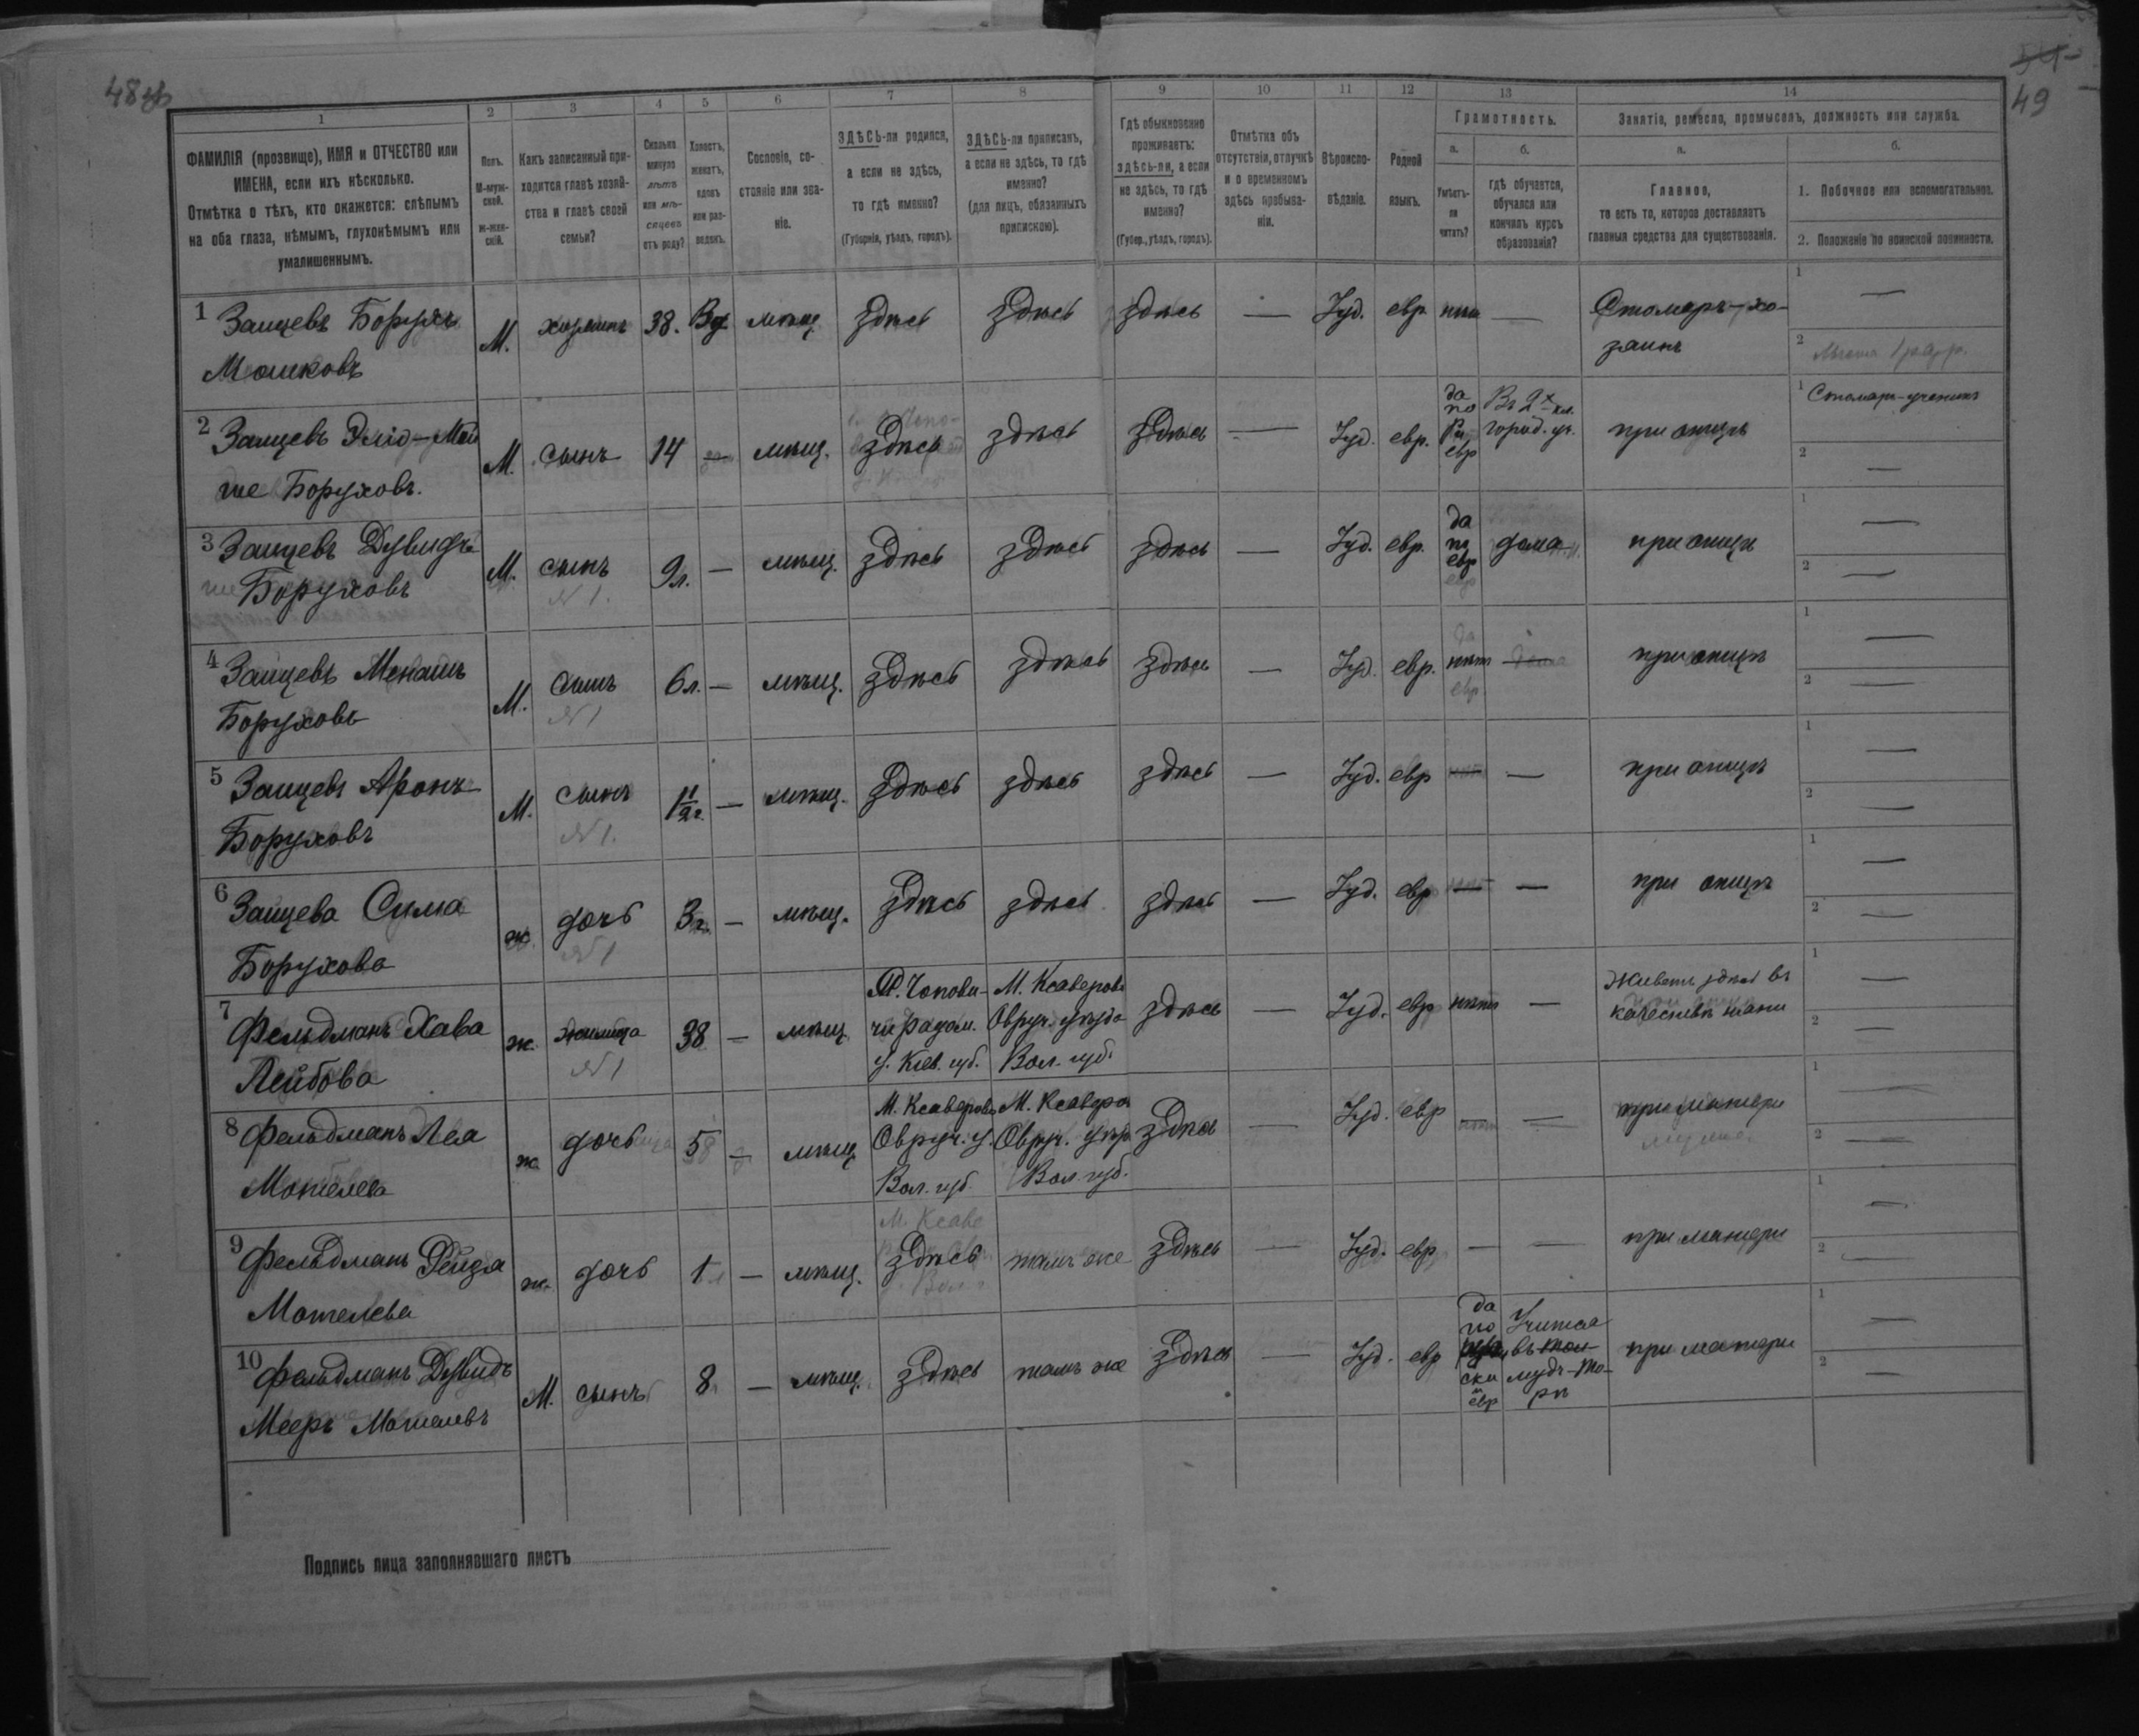 48 об
49
1 2 3 4 5 6 7 8 9 10 11 12 13 14
ФАМИЛІЯ (прозвище), ИМЯ и ОТЧЕСТВО или
ИМЕНА, если ихъ нѣсколько.
Отмѣтка о тѣхъ, кто окажется: слѣпымъ
на оба глаза, нѣмымъ, глухонѣмымъ или
умалишеннымъ.
Полъ.
М-муж-
ской.
ж-жен-
скій.
Какъ записанный при-
ходится главѣ хозяй-
ства и главѣ своей
семьи?
Сколько
минуло
лѣтъ
или мѣ-
сяцевъ
отъ роду?
Холостъ,
женатъ,
вдовъ
или раз-
веденъ.
Сословіе, со-
стояніе или зва-
ніе.
ЗДѢСЬ-ли родился,
а если не здѣсь,
то гдѣ именно?
(Губернія, уѣздъ, городъ).
ЗДѢСЬ-ли приписанъ,
а если не здѣсь, то гдѣ
именно?
(для лицъ, обязанныхъ
припискою).
Гдѣ обыкновенно
проживаетъ:
здѣсь-ли, а если
не здѣсь, то гдѣ
именно?
(Губер., уѣздъ, городъ).
Отмѣтка объ
отсутствіи, отлучкѣ
и о временномъ
здѣсь пребыва-
ніи.
Вѣроиспо-
вѣданіе.
Родной
языкъ.
Грамотность.
а.
Умѣетъ-
ли
читать?
б.
гдѣ обучается,
обучался или
кончилъ курсъ
образованія?
Занятіе, ремесло, промыселъ, должность или служба.
а.
Главное,
то есть то, которое доставляетъ
главныя средства для существованія.
б.
1. Побочное или вспомогательное.
2. Положеніе по воинской повинности.
1 Заицевъ Борухъ М. хозяинъ 38. Вд мѣщ здѣсь здѣсь здѣсь — Іуд. евр — Столяръ-хо- 1 —
Мошковъ заинъ 2
2 Заицевъ М. сынъ 14 — мѣщ. здѣсь здѣсь здѣсь — Іуд. евр. да по евр Въ 2х кл. при отцѣ 1 Столяръ-ученикъ
Боруховъ. город. уч. 2 —
3 Заицевъ Дувидъ М. сынъ 9 л. — мѣщ. здѣсь здѣсь здѣсь — Іуд. евр. да по евр дома при отцѣ 1 —
Боруховъ N 1. 2 —
4 Заицевъ Менашъ М. сынъ 6 л. — мѣщ. здѣсь здѣсь здѣсь — Іуд. евр. нѣт — при отцѣ 1 —
Боруховъ N 1 2 —
5 Заицевъ Аронъ М. сынъ 1 1/2 г. — мѣщ. здѣсь здѣсь здѣсь — Іуд. евр — — при отцѣ 1 —
Боруховъ N 1. 2 —
6 Заицева Сима ж. дочь 3 г. — мѣщ. здѣсь здѣсь здѣсь — Іуд. евр — — при отцѣ 1 —
Борухова N 1 2 —
7 Фельдманъ Хава ж. жилица 38 — мѣщ М. Чопови- М. Ксаверовъ здѣсь — Іуд. евр нѣтъ — Живетъ здѣсь въ 1 —
Лейбова N 1 чи Радом. Овруч. уѣзда качествѣ няни 2 —
у. Кіев. губ. Вол. губ.
8 Фельдманъ Леа ж. дочь 5 — мѣщ М. Ксаверовъ М. Ксаверов здѣсь — Іуд. евр — — при матери 1 —
Мотелева Овруч. у. Овруч. уѣз. 2 —
Вол. губ. Вол. губ.
9 Фельдманъ Рейза ж. дочь 1 — мѣщ. здѣсь тамъ же здѣсь — Іуд. евр — — при матери 1 —
Мотелева 2 —
10 Фельдманъ Дувидъ М. сынъ 8 — мѣщ. здѣсь тамъ же здѣсь — Іуд. евр да по ски и евр Учится при матери 1 —
Мееръ Мотелевъ въ тал- 2 —
мудъ-то-
рѣ
Подпись лица заполнявшаго листъ